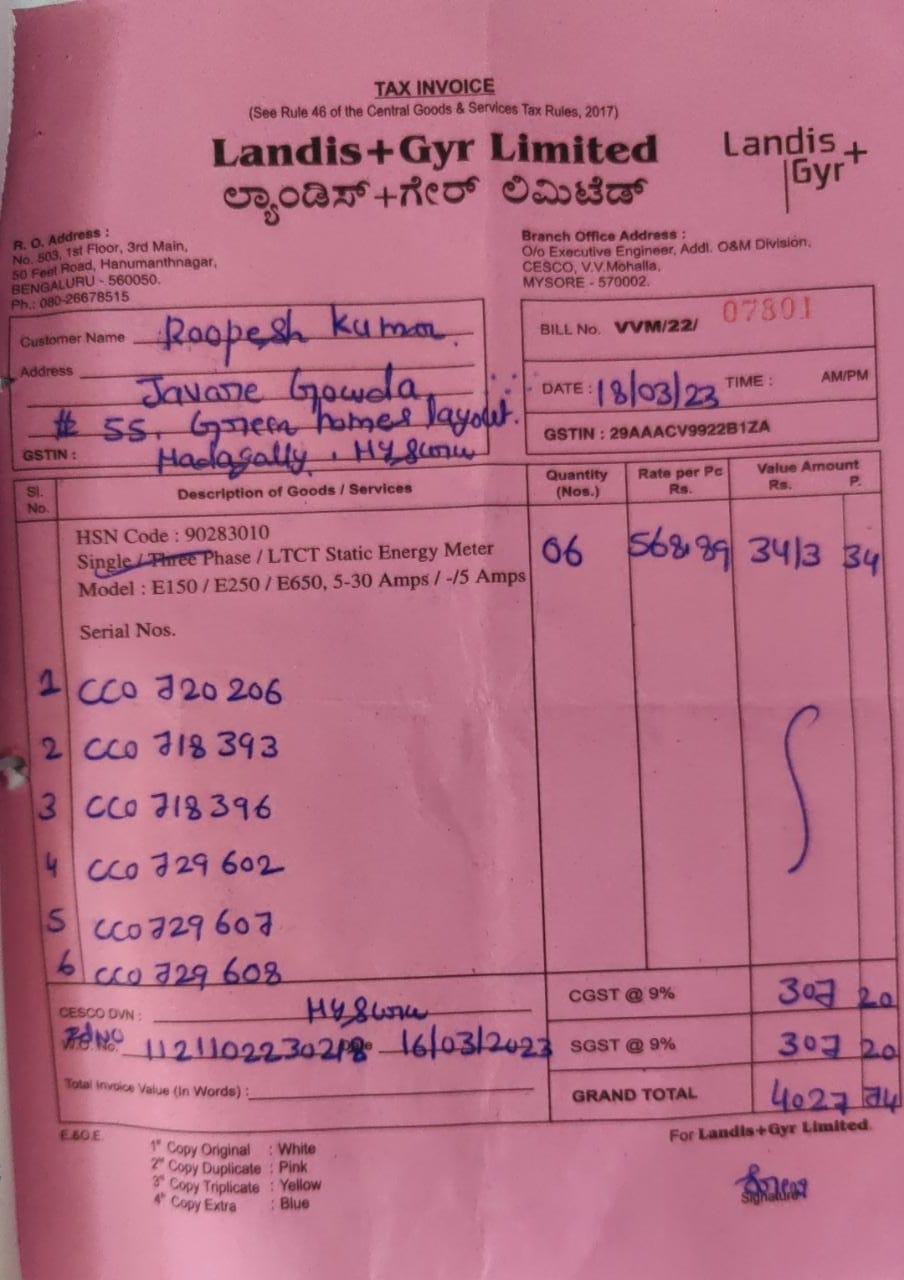 TAX INVOICE
(See Rule 46 of the Central Goods & Services Tax Rules, 2017)
Landis+Gyr Limited
ಲ್ಯಾಂಡಿಸ್ +ಗೇರ್ ಲಿಮಿಟೆಡ್
Landis+
Gyr
R. O. Address :
No. 503, 1st Floor, 3rd Main,
50 Feet Road, Hanumanthnagar,
BENGALURU - 560050.
Ph.: 080-26678515
Branch Office Address :
O/o Executive Engineer, Addl. O&M Division,
CESCO, V.V.Mohalla,
MYSORE - 570002.
Customer Name Roopesh Kumar.
Address
Javare Gowda
# 55, Green homes layout.
GSTIN : Madagally, Mysuru
BILL No. VVM/22/ 07801
DATE : 18/03/23 TIME : AM/PM
GSTIN : 29AAACV9922B1ZA
Sl. No. Description of Goods / Services Quantity (Nos.) Rate per Pc Rs. Value Amount Rs. P.
HSN Code : 90283010
Single / Three Phase / LTCT Static Energy Meter 06 568.89 3413 34
Model : E150 / E250 / E650, 5-30 Amps / -/5 Amps
Serial Nos.
1 CCO 720 206
2 CCO 718 393
3 CCO 718 396
4 CCO 729 602
5 CCO 729 607
6 CCO 729 608
CGST @ 9% 307 20
CESCO DVN : Mysuru
16/03/2023
SGST @ 9% 307 20
Total Invoice Value (In Words) :
GRAND TOTAL 4027 74
E.&O.E.
1st Copy Original : White
2nd Copy Duplicate : Pink
3rd Copy Triplicate : Yellow
4th Copy Extra : Blue
For Landis+Gyr Limited.
Signature